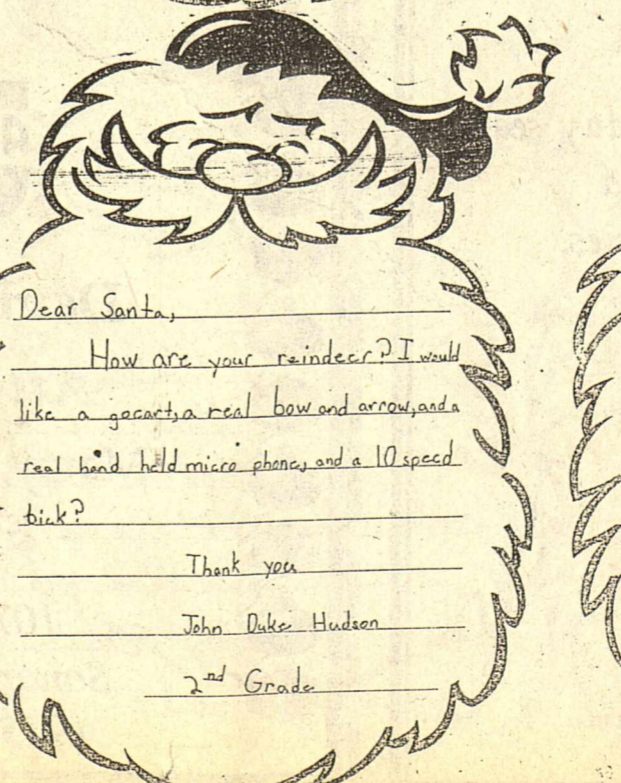 Dear Santa,
How are your reindeer? I would
like a gocart, a real bow and arrow, and a
real hand held micro phone, and a 10 speed
bick?
Thank you
John Duke Hudson
2nd Grade